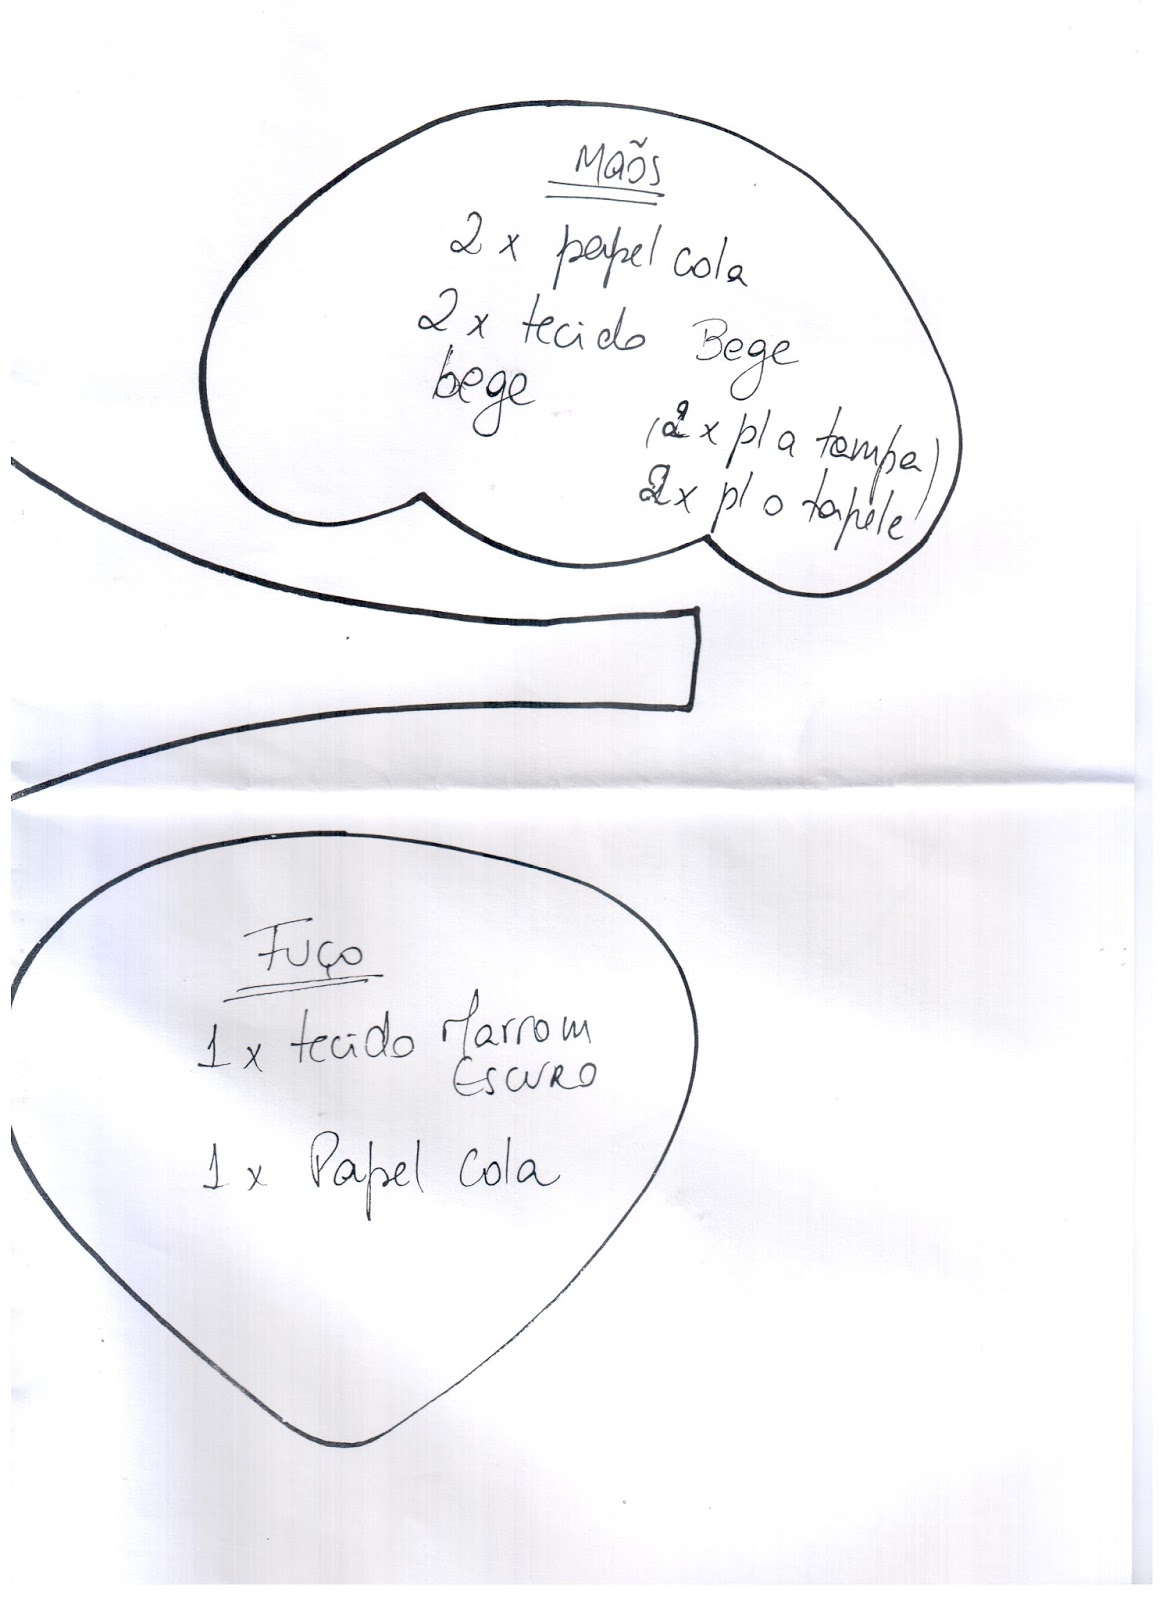 Maõs
2 x papel cola
2 x tecido Bege
bege
(2 x p/ a tampa)
2x p/ o tapete
Fuço
1 x tecido Marrom
Escuro
1 x Papel cola